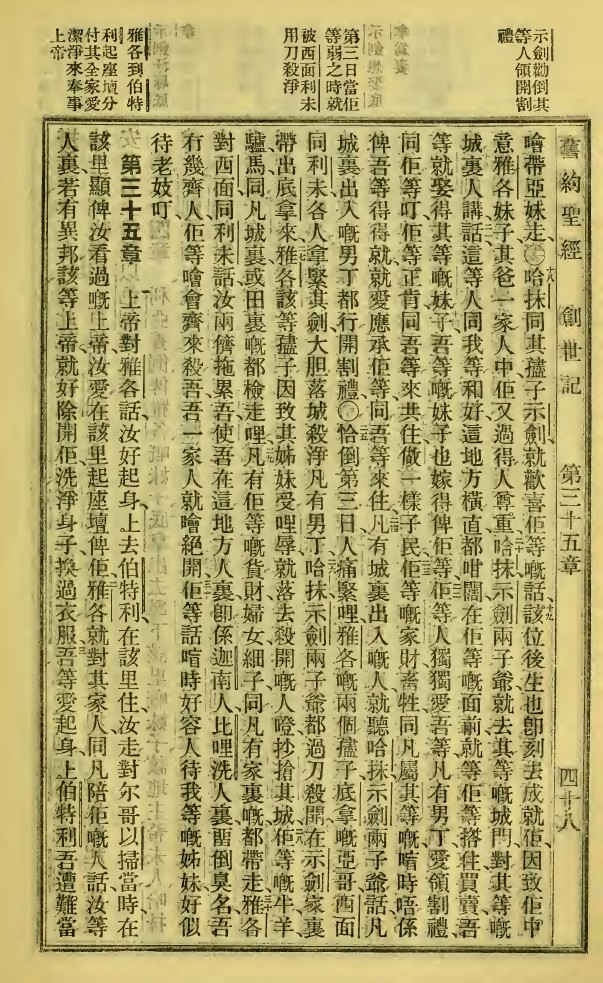 舊約聖經　創世記　第三十五章　四十八
示劍勸倒其
等人領開割
禮
第三日當佢
等弱之時就
被西面利未
用刀殺淨
雅各到伯特
利起座壇分
付其全家愛
潔淨來奉事
上帝
噲帶亞妹走、〇哈抹同其孻子示劍就歡喜佢等嘅話、該位後生也卽刻去成就、佢因致佢中
意雅各妹子、其爸一家人中佢又過得人尊重、哈抹示劍兩子爺就去其等嘅城門、對其等嘅
城裏人講話、這等人同我等和好、這地方橫直都咁闊在佢等嘅面前、就等佢等撘住買賣、吾
等就娶得其等嘅妹子、吾等嘅妹子也嫁得俾佢等、佢等人獨獨愛吾等凡有男丁、愛領割禮
同佢等、叮佢等正肯同吾等來共住、做一樣子民、佢等嘅家財畜牲同凡屬其等嘅、喑時唔係
俾吾等得得、就就愛應承佢等、同吾等來住、凡有城裏出入嘅人就聽哈抹示劍兩子爺話、凡
城裏出入嘅男丁都行開割禮、〇恰倒第三日人痛緊哩、雅各嘅兩個孻子底拿嘅亞哥西面
同利未、各人拿緊其劍、大胆落城殺淨凡有男丁、哈抹示劍兩子爺都過刀殺開、在示劍家裏
帶出底拿來、雅各該等孻子、因致其姊妹受哩辱、就落去殺開嘅人嶝、抄搶其城、佢等嘅牛羊
驢馬、同凡城裏或田裏嘅都檢走哩、凡有佢等嘅貨財婦女細子、同凡有家裏嘅都帶走、雅各
對西面同利未話、汝兩儕拖累吾、使吾在這地方人裏、卽係迦南人比哩洗人裏、留倒臭名、吾
冇幾儕人、佢等噲會齊來殺吾、吾一家人就噲絕開、佢等話、喑時好容人待我等嘅姊妹好似
待老妓叮、
第三十五章　上帝對雅各話、汝好起身、上去伯特利、在該里住、汝走對尔哥以掃當時、在
該里顯俾汝看過嘅上帝、汝愛在該里起座壇俾佢、雅各就對其家人同凡陪佢嘅人話、汝等
人裏若有異邦該等上帝、就好除開佢、洗淨身子換過衣服、吾等愛起身、上伯特利、吾遭難當